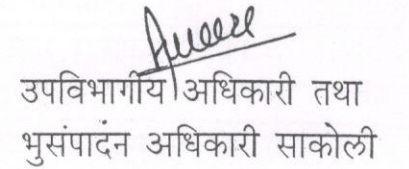 उपविभागीय अधिकारी तथा
भुसंपादंन अधिकारी साकोली